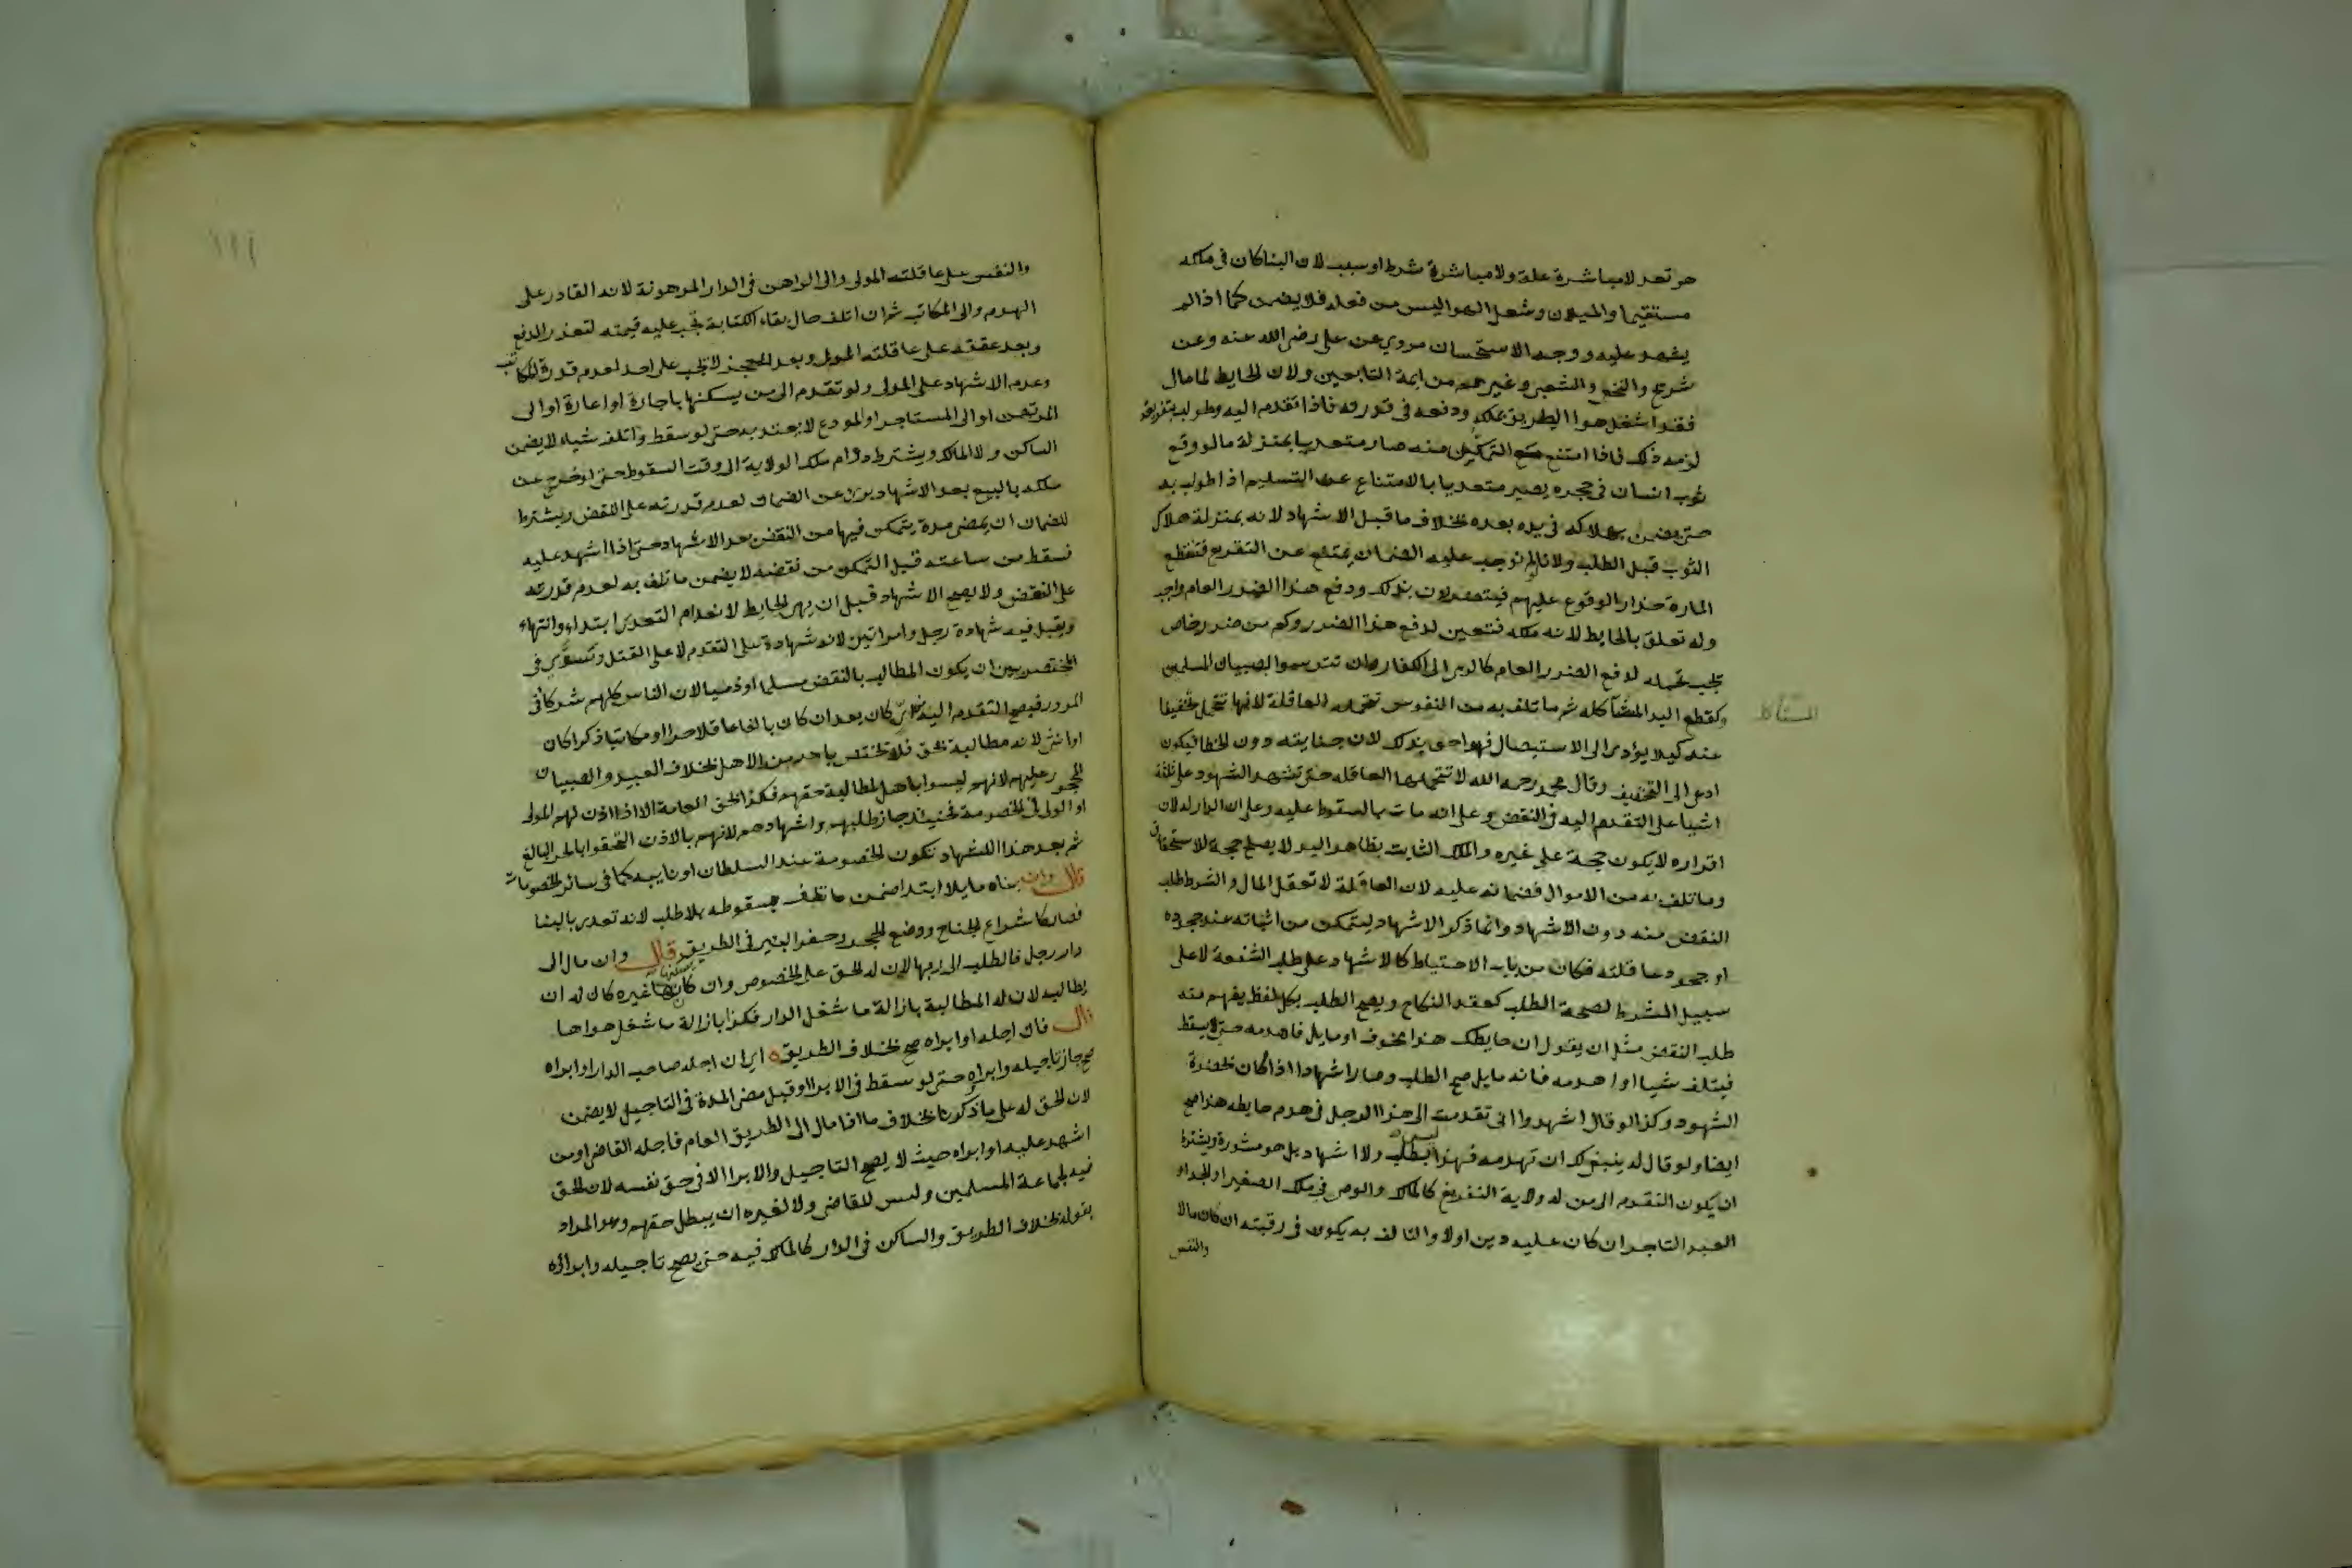 هو تعد لامباشرة علة ولا مباشرة شرط او سبب لان البنا كان في ملكه
مستقيما والميلان وشغل الهوا ليس من فعله فلا يضمن كما اذا لم
يشهد عليه ووجه الاستحسان مروي عن علي رضي الله عنه وعن
شريح والنخعي والشعبي وغيرهم من ايمة التابعين ولان الحايط لما مال
فقد اشغل هوا الطريق بملكه ودفعه في قدرته فاذا تقدم اليه وطولب بتفريغه
لزمه ذلك فاذا امتنع مع التمكن منه صار متعديا بمنزلة ما لو وقع
ثوب انسان في حجره يصير متعديا بالامتناع عن التسليم اذا طولب به
حتى يضمن بهلاكه في يده بعده بخلاف ما قبل الاشهاد لانه بمنزلة هلاك
الثوب قبل الطلب ولانا لو لم نوجب عليه الضمان يمتنع عن التفريغ فتنقطع
المارة حذار الوقوع عليهم فيتضررون بذلك ودفع هذا الضرر العام واجب
وله تعلق بالحايط لانه ملكه فتتعين لدفع هذا الضرر وكم من ضرر خاص
يجب تحمله لدفع الضرر العام كالرمي الى الكفار وان تترسوا بصبيان المسلمين
وكقطع اليد المتآكله ثم ما تلف به من النفوس تتحمله العاقلة لانها تتحمل تخفيفا
المتآكله
عنه كيلا يؤدي الى الاستيصال فهو احق بذلك لان جنايته دون الخطا فيكون
ادعى الى التخفيف وقال محمد رحمه الله لا تتحملها العاقله حتى تشهد الشهود على ثلثة
اشيا على التقدم اليه في النقض وعلى انه مات بالسقوط عليه وعلى ان الدار له لان
اقراره لا يكون حجة على غيره والملك الثابت بظاهر اليد لا يصلح حجة للاستحقاق
وما تلف به من الاموال فضمانه عليه لان العاقلة لا تعقل المال والشرط طلب
النقض منه دون الاشهاد وانما ذكر الاشهاد ليتمكن من اثباته عند جحوده
او جحود عاقلته فكان من باب الاحتياط كالاشهاد على طلب الشفعة لا على
سبيل الشرط لصحة الطلب كعقد النكاح ويصح الطلب بكل لفظ يفهم منه
طلب النقض مثل ان يقول ان حايطك هذا مخوف او مايل فاهدمه حتى لا يسقط
فيتلف شيا او اهدمه فانه مايل صح الطلب وصار اشهادا اذا كان بحضرة
الشهود وكذا لو قال اشهدوا اني تقدمت الى هذا الرجل في هدم حايطه هذا صح
ايضا ولو قال له ينبغي لك ان تهدمه فهذا ليس بطلب ولا اشهاد بل هو مشورة ويشترط
ان يكون التقدم الى من له ولاية التفريغ كالمالك والوصي في ملك الصغير او الجد او
العبد التاجر ان كان عليه دين اولا والتالف به يكون في رقبته ان كان مالا
والنفس
١١١
والنفس على عاقلته المولى والى الراهن في الدار المرهونة لانه القادر على
الهدم والى المكاتب ثم ان اتلف حال بقاء الكتابة تجب عليه قيمته لتعذر الدفع
وبعد عتقه على عاقلته المولى وبعد العجز لا تجب على احد لعدم قدرة المكاتب
وعدم الاشهاد على المولى ولو تقدم الى من يسكنها باجارة او اعارة او الى
المرتهن او الى المستاجر او المودع لا يعتد به حتى لو سقط واتلف شياء لا يضمن
الساكن ولا المالك ويشترط دوام ملك الولاية الى وقت السقوط حتى لو خرج عن
ملكه بالبيع بعد الاشهاد برئ عن الضمان لعدم قدرته على النقض ويشترط
للضمان ان يمضي مدة يتمكن فيها من النقض بعد الاشهاد حتى اذا اشهد عليه
فسقط من ساعته قبل التمكن من نقضه لا يضمن ما تلف به لعدم قدرته
على النقض ولا يصح الاشهاد قبل ان يهي الحايط لانعدام التعدي ابتداء وانتهاء
ويقبل فيه شهادة رجل وامراتين لانه شهادة على التقدم لا على القتل وتسوى في
المختصر بين ان يكون المطالب بالنقض مسلما او ذميا لان الناس كلهم شركا في
المرور فيصح التقدم اليه من اي كان بعد ان كان بالغا عاقلا حرا او مكاتبا ذكرا كان
او انثى لانه مطالبة بحق فلا تختص باحد من الاهل بخلاف العبيد والصبيان
المحجور عليهم لانهم ليسوا باهل لمطالبة حقهم فكذا لحق العامة الا اذا اذن لهم المولى
او الولي في الخصومة فحينئذ جاز طلبهم واشهادهم لانهم بالاذن التحقوا بالحر البالغ
ثم بعد هذا الاشهاد تكون الخصومة عند السلطان او نايبه كما في سائر الخصومات
قال وان بناه مايلا ابتدا ضمن ما تلف بسقوطه بلا طلب لانه تعدي بالبنا
فصار كاشراع الجناح ووضع الحجر وحفر البير في الطريق قال وان مال الى
دار رجل فالطلب الى ربها لان له الحق على الخصوص وان كان يسكنها غيره كان له ان
يطالبه لان له المطالبة بازالة ما شغل الدار فكذا بازالة ما شغل هواها
قال فان اجله او ابراه صح بخلاف الطريق اي ان اجله صاحب الدار او ابراه
صح جاز تاجيله وابراه حتى لو سقط في الابرا او قبل مضى المدة في التاجيل لا يضمن
لان الحق له على ما ذكرنا بخلاف ما اذا مال الى الطريق العام فاجله القاضي او من
اشهد عليه او ابراه حيث لا يصح التاجيل والابرا الا في حق نفسه لان الحق
فيه لجماعة المسلمين وليس للقاضي ولا لغيره ان يبطل حقهم وهو المراد
بقوله بخلاف الطريق والساكن في الدار كالمالك فيه حتى يصح تاجيله وابراؤه